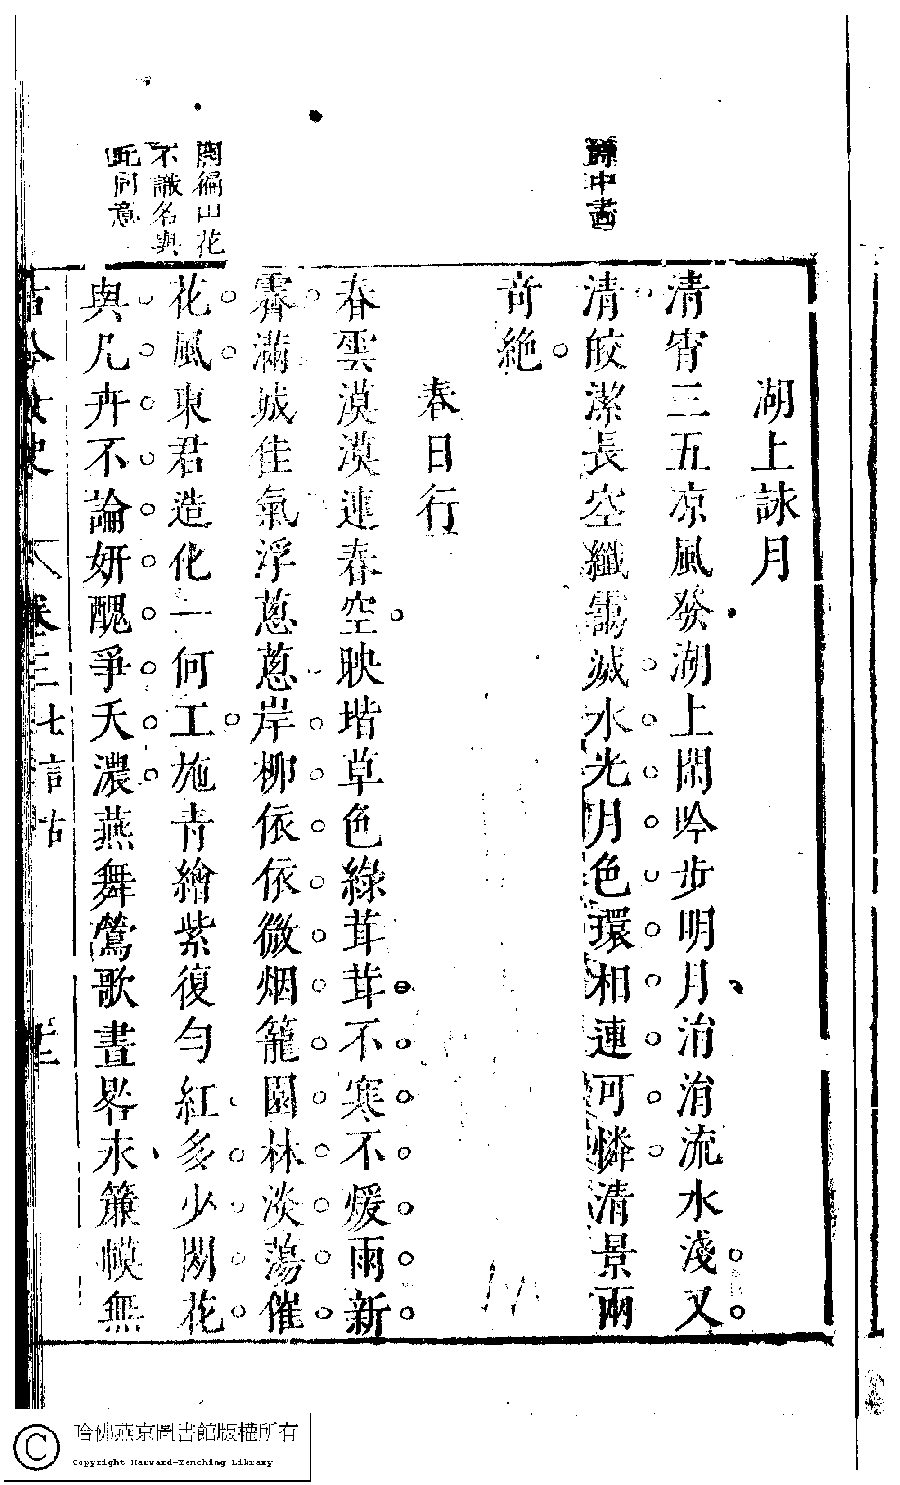 詩中畵
湖上詠月
清宵三五凉風發湖上閑吟步明月涓涓流水淺又
清皎潔長空纖靄滅水光月色環相連可憐清景兩
奇絶
春日行
春雲漠漠連春空映堦草色綠茸茸不寒不煖雨新
霽滿城佳氣浮蔥蔥岸柳依依微烟籠園林淡蕩催
花風東君造化一何工施青繪紫復勻紅多少閑花
與凡卉不論妍醜爭夭濃燕舞鶯歌晝畧永簾幙無
開徧山花
不識名與
此同意
古今女史
卷三
七言古
哈佛燕京圖書館版權所有
Copyright Harvard-Yenching Library